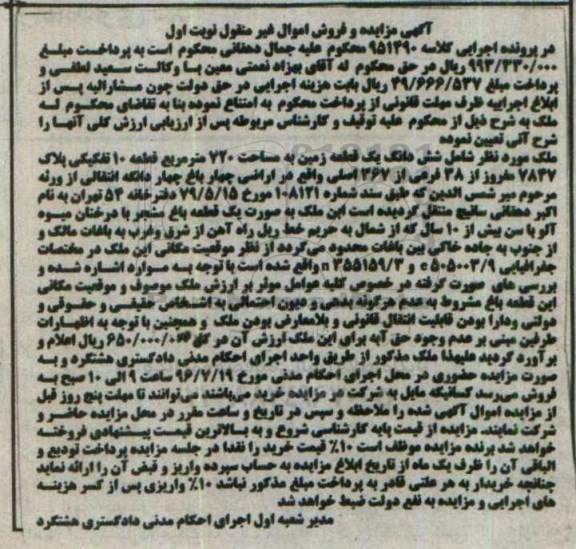 آگهی مزایده و فروش اموال غیر منقول نوبت اول
در پرونده اجرایی کلاسه ۹۵۱۴۹۰ محکوم علیه جمال دهقانی محکوم است به پرداخت مبلغ
۹۹۳/۳۳۰/۰۰۰ ریال در حق محکوم له آقای بهزاد نعمتی معین با وکالت سعید لطفی و
پرداخت مبلغ ۴۹/۶۶۶/۵۳۷ ریال بابت هزینه اجرایی در حق دولت چون مشارالیه پس از
ابلاغ اجراییه ظرف مهلت قانونی از پرداخت محکوم به امتناع نموده بنا به تقاضای محکوم له
ملک به شرح ذیل از محکوم علیه توقیف و کارشناس مربوطه پس از ارزیابی ارزش کلی آنها را
شرح آتی تعیین نموده
ملک مورد نظر شامل شش دانگ یک قطعه زمین به مساحت ۷۲۰ مترمربع قطعه ۱۰ تفکیکی پلاک
۷۸۴۷ مفروز از ۳۸ فرعی از ۳۶۷ اصلی واقع در اراضی چهار باغ چهار دانگه انتقالی از ورثه
مرحوم میر شمس الدین که طبق سند شماره ۱۰۸۱۲۱ مورخ ۷۹/۵/۱۵ دفترخانه ۵۴ تهران به نام
اکبر دهقانی سانیچ منتقل گردیده است این ملک به صورت یک قطعه باغ مشجر با درختان میوه
آلو با سن بیش از ۱۰ سال که از شمال به حریم خط ریل راه آهن از شرق وغرب به باغات مالک و
از جنوب به جاده خاکی بین باغات محدود می‌گردد از نظر موقعیت مکانی این ملک در مختصات
جغرافیایی e ۵۰۵۰۰۳/۹ و n ۳۵۵۱۵۹/۳ واقع شده است با توجه به موارد اشاره شده و
بررسی های صورت گرفته در خصوص کلیه عوامل موثر بر ارزش ملک موصوف و موقعیت مکانی
این قطعه باغ مشروط به عدم هرگونه بدهی و دیون احتمالی به اشخاص حقیقی و حقوقی و
دولتی ودارا بودن قابلیت انتقال قانونی و بلامعارض بودن ملک و همچنین با توجه به اظهارات
طرفین مبنی بر عدم وجود حق آبه برای این ملک ارزش آن در کل ۶۵۰/۰۰۰/۰۰۰ ریال اعلام و
برآورد گردید علیهذا ملک مذکور از طریق واحد اجرای احکام مدنی دادگستری هشتگرد و به
صورت مزایده حضوری در محل اجرای احکام مدنی مورخ ۹۶/۷/۱۹ ساعت ۹ الی ۱۰ صبح به
فروش می‌رسد کسانیکه مایل به شرکت در مزایده خرید می‌باشند می‌توانند تا مهلت پنج روز قبل
از مزایده اموال آگهی شده را ملاحظه و سپس در تاریخ و ساعت مقرر در محل مزایده حاضر و
شرکت نمایند. مزایده از قیمت پایه کارشناسی شروع و به بالاترین قیمت پیشنهادی فروخته
خواهد شد برنده مزایده موظف است ۱۰٪ قیمت خرید را نقدا در جلسه مزایده پرداخت تودیع و
الباقی آن را ظرف یک ماه از تاریخ ابلاغ مزایده به حساب سپرده واریز و قبض آن را ارائه نماید
چنانچه خریدار به هر علتی قادر به پرداخت مبلغ مذکور نباشد ۱۰٪ واریزی پس از کسر هزینه
های اجرایی و مزایده به نفع دولت ضبط خواهد شد
مدیر شعبه اول اجرای احکام مدنی دادگستری هشتگرد